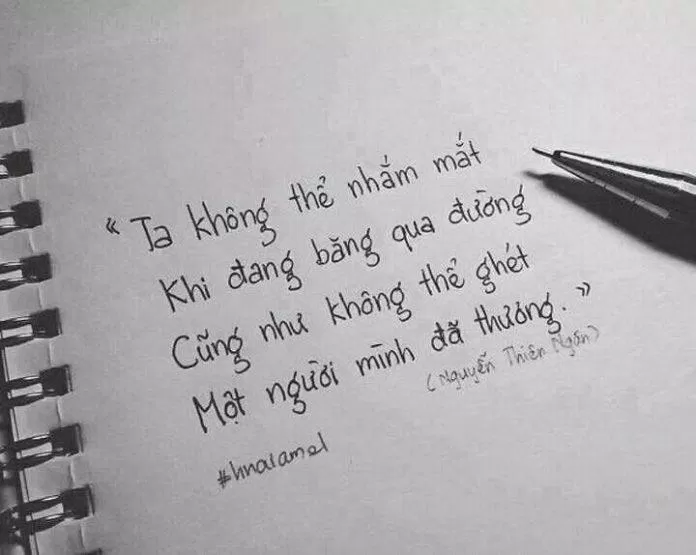 “Ta không thể nhắm mắt
Khi đang băng qua đường
Cũng như không thể ghét
Một người mình đã thương.”
(Nguyễn Thiên Ngân)